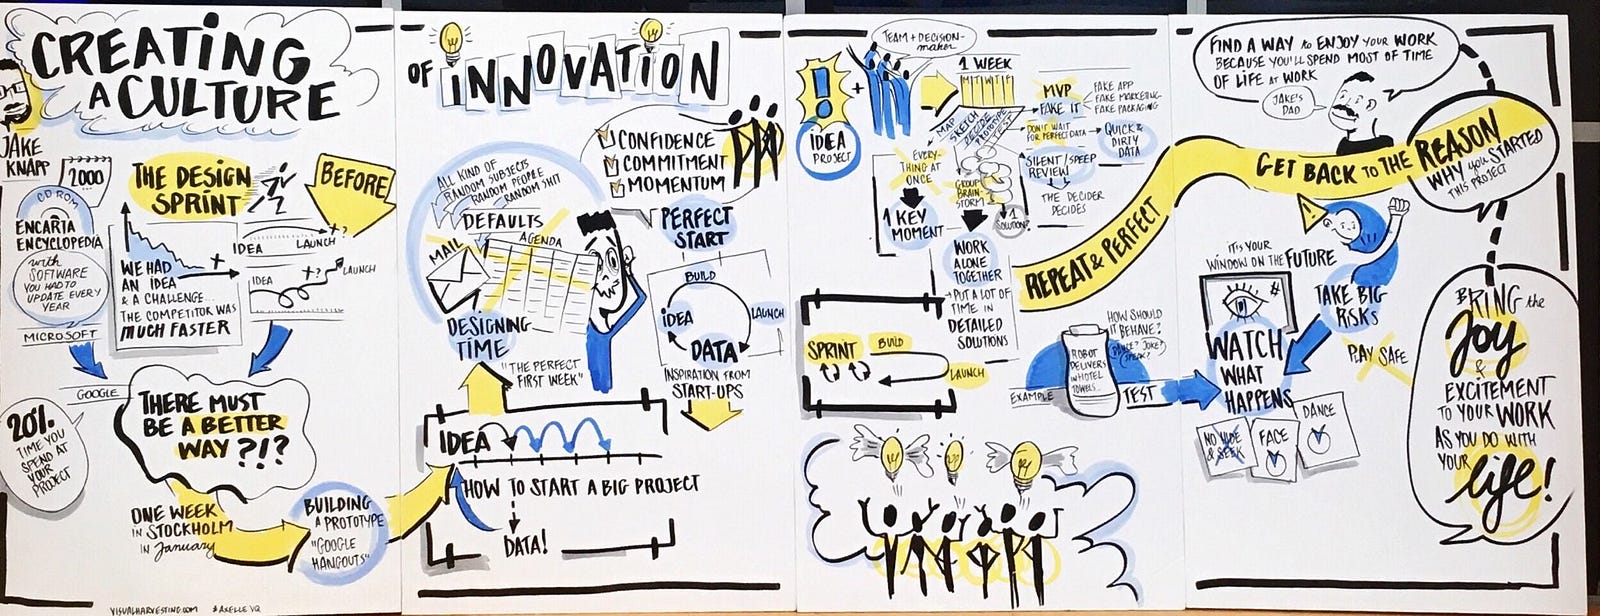 CREATING
A CULTURE
JAKE
KNAPP
2000
CD-ROM
ENCARTA
ENCYCLOPEDIA
with
SOFTWARE
YOU HAD TO
UPDATE EVERY
YEAR
MICROSOFT
THE DESIGN
SPRINT
BEFORE
WE HAD
AN IDEA
& A CHALLENGE...
THE COMPETITOR WAS
MUCH FASTER
IDEA
LAUNCH
+?
IDEA
+?
LAUNCH
GOOGLE
20%
TIME YOU
SPEND AT
YOUR
PROJECT
THERE MUST
BE A BETTER
WAY ?!?
ONE WEEK
IN STOCKHOLM
IN January
BUILDING
A PROTOTYPE
"GOOGLE
HANGOUTS"
VISUALHARVESTING.COM
#AXELLE VQ
OF INNOVATION
CONFIDENCE
COMMITMENT
MOMENTUM
ALL KIND OF
RANDOM SUBJECTS
RANDOM PEOPLE
RANDOM SHIT
DEFAULTS
MAIL
AGENDA
DESIGNING
TIME
"THE PERFECT
FIRST WEEK"
PERFECT
START
BUILD
IDEA
LAUNCH
DATA
INSPIRATION FROM
START-UPS
IDEA
HOW TO START A BIG PROJECT
DATA!
TEAM + DECISION-
maker
!
+
IDEA
PROJECT
1 WEEK
M T W T F
MAP
SKETCH
DECIDE
PROTOTYPE
TEST
MVP
FAKE IT
FAKE APP
FAKE MARKETING
FAKE PACKAGING
DON'T WAIT
FOR PERFECT DATA
QUICK &
DIRTY
DATA
EVERY-
THING AT
ONCE
1 KEY
MOMENT
GROUP
BRAIN-
STORM
WORK
ALONE
TOGETHER
PUT A LOT OF
TIME IN
DETAILED
SOLUTIONS
1
SOLUTION
SILENT/SPEEP
REVIEW
THE DECIDER
DECIDES
SPRINT
BUILD
LAUNCH
REPEAT & PERFECT
EXAMPLE
ROBOT
DELIVERS
IN HOTEL
TOWELS...
HOW SHOULD
IT BEHAVE?
DANCE? JOKE?
SPEAK?
TEST
FIND A WAY to ENJOY YOUR WORK
BECAUSE YOU'LL SPEND MOST OF TIME
OF LIFE AT WORK
JAKE'S
DAD
GET BACK TO THE REASON
WHY you STARTED
THIS PROJECT
IT'S YOUR
WINDOW ON THE FUTURE
WATCH
WHAT
HAPPENS
TAKE BIG
RISKS
PLAY SAFE
NO HIDE
& SEEK
FACE
DANCE
BRING the
Joy
&
EXCITEMENT
TO YOUR WORK
AS YOU DO WITH
YOUR
life!